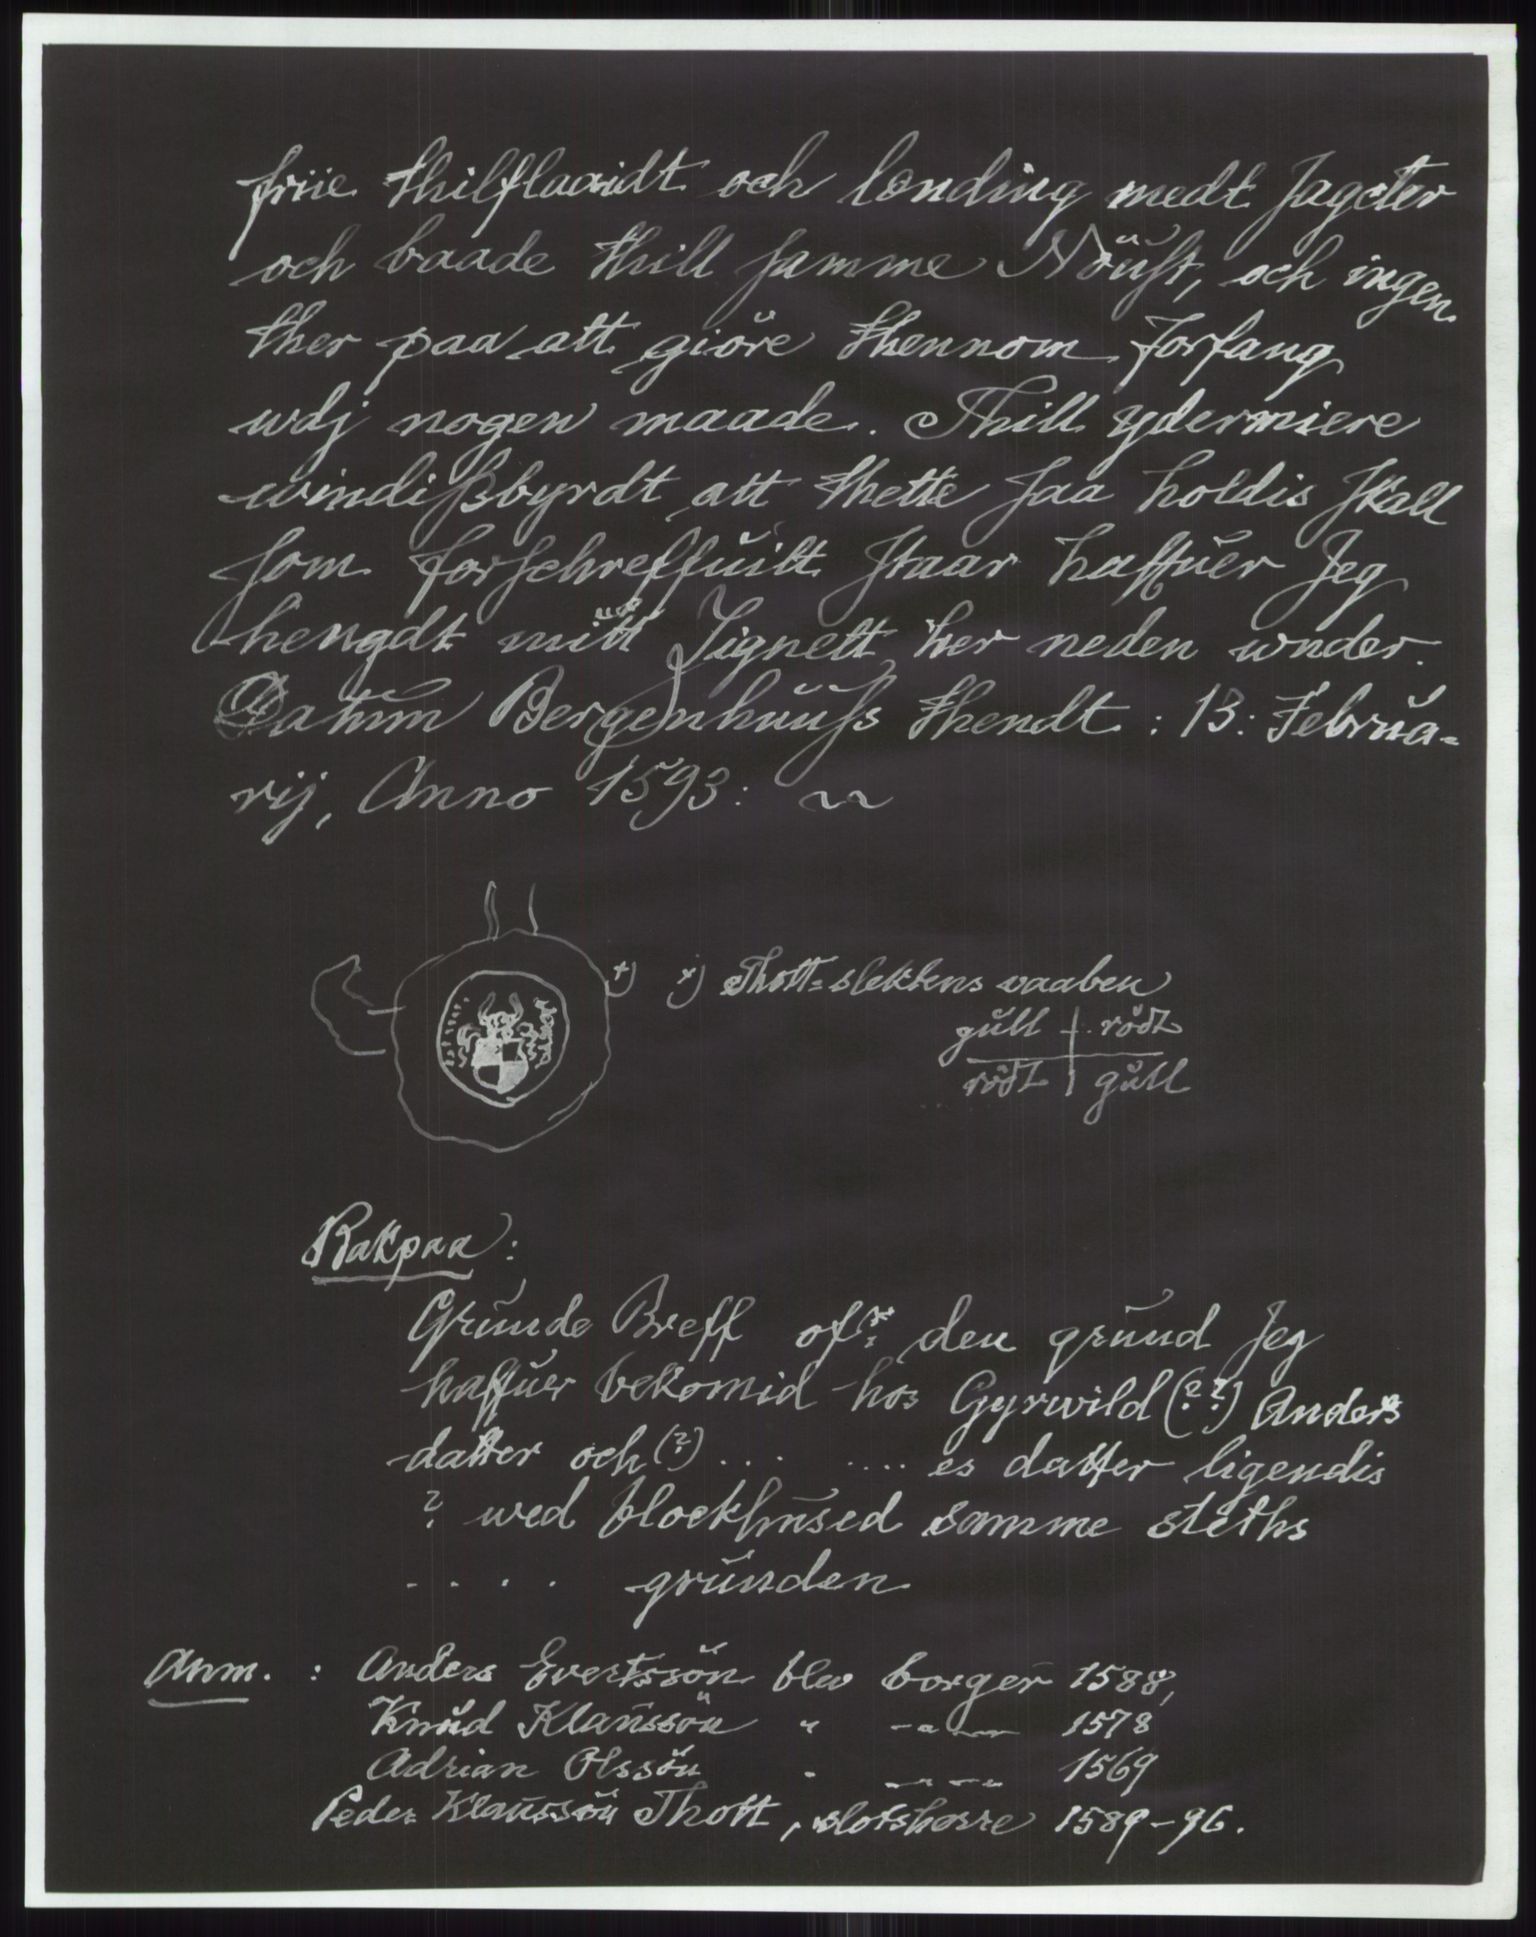 friie thilflaaidt och lending medt Jagcter
och baade thill samme Nöüst, och ingen
ther paa att giöre thennom forfang
wdj nogen maade. Thill ydermiere
windißbyrdt att thette saa holdis skall
som forschreffuitt staar haffuer Jeg
hengdt mitt Signett her neden wnder.
Datum Bergenhuuss thendt : 13: Februa-
rij, Anno 1593:
+) x) Thott-slektens vaaben
gull rödt
rödt gull
Bakpaa:
Grunde Breff of? den grund Jeg
haffuer bekomid hos Gyrwild (??) Anders
datter och (?) ... .... es datter ligendis
? wed blockhused samme steths
. . . . grunden
Anm. : Anders Evertssön blev borger 1588,
Knud Klaussön " -"- 1578
Adrian Olssön " -"- 1569
Peder Klaussön Thott, slotsherre 1589-96.